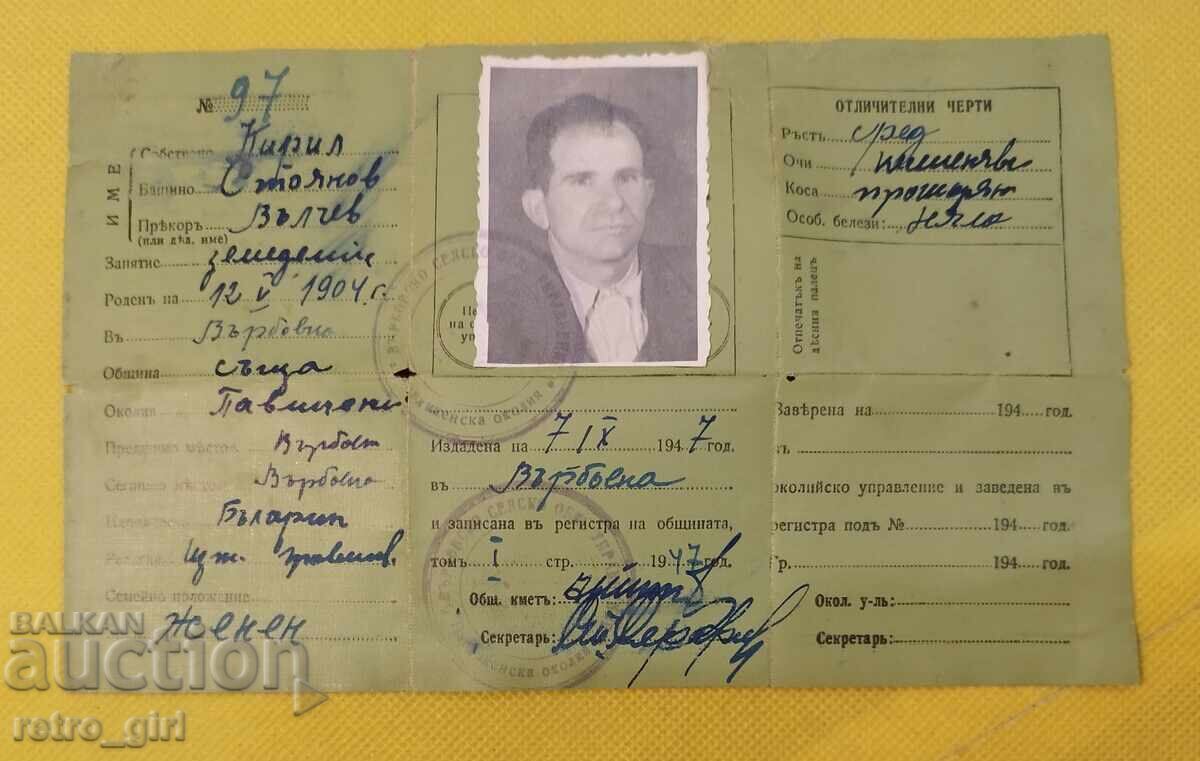 № 97
ИМЕ
Собствено Кирил
Бащино Стоянов
Прѣкоръ Вълчев
(или дѣд. име)
Занятие земеделец
Роденъ на 12 V 1904 г.
Въ Върбовка
Община съща
Околия Павликени
Върбовка
Върбовка
Българин
Изт. правосл.
Семейно положение
Женен
Издадена на 7 IX 1947 год.
въ Върбовка
и записана въ регистра на общината,
томъ I стр. 1947 год.
Общ. кметъ:
Секретарь:
ОТЛИЧИТЕЛНИ ЧЕРТИ
Ръстъ сред
Очи
Коса прошарен
Особ. белези: няма
Отпечатъкъ на
дѣсния палец
Заверена на 194 год.
въ
околийско управление и заведена въ
регистра подъ № 194
Гр. 194 год.
Окол. у-ль:
Секретарь:
BALKAN
auction
retro_girl